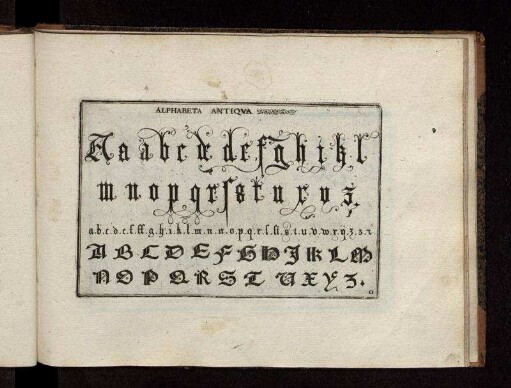 ALPHABETA ANTIQVA
A a a b c d d e f g h i k l
m n o p q r ſ s t u x v z.
a.b.c.d.e.f.ff.g.h.i.k.l.m.n.o.p.q.r.ſ.ſi.s.t.u.v.w.x.y.z.
A B C D E F G H I K L M
N O P Q R S T U X Y Z.